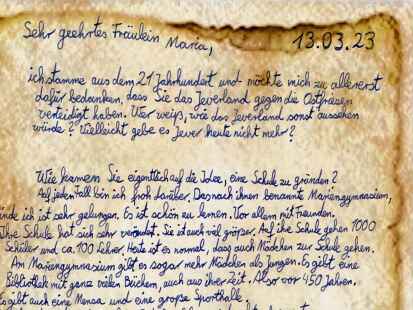 Sehr geehrtes Fräulein Maria,
13.03.23
ich stamme aus dem 21 Jahrhundert und möchte mich zu allererst
dafür bedanken, dass Sie das Jeverland gegen die Ostfriesen
verteidigt haben. Wer weiß, wie das Jeverland sonst aussehen
würde? Vielleicht gebe es Jever heute nicht mehr?
Wie kamen Sie eigentlich auf die Idee, eine Schule zu gründen?
Auf jeden Fall bin ich froh darüber. Das nach ihnen benannte Mariengymnasium,
inde ich ist sehr gelungen. Es ist schön zu lernen. Vor allem mit Freunden.
Ihre Schule hat sich sehr verändert. Sie ist auch viel größer. Auf ihre Schule gehen 1000
Schüler und ca. 100 Lehrer. Heute ist es normal, dass auch Mädchen zur Schule gehen.
Am Mariengymnasium gibt es sogar mehr Mädchen als Jungen. Es gibt eine
Bibliothek mit ganz vielen Büchern, auch aus ihrer Zeit. Also vor 450 Jahren.
Es gibt auch eine Mensa und eine große Sporthalle.